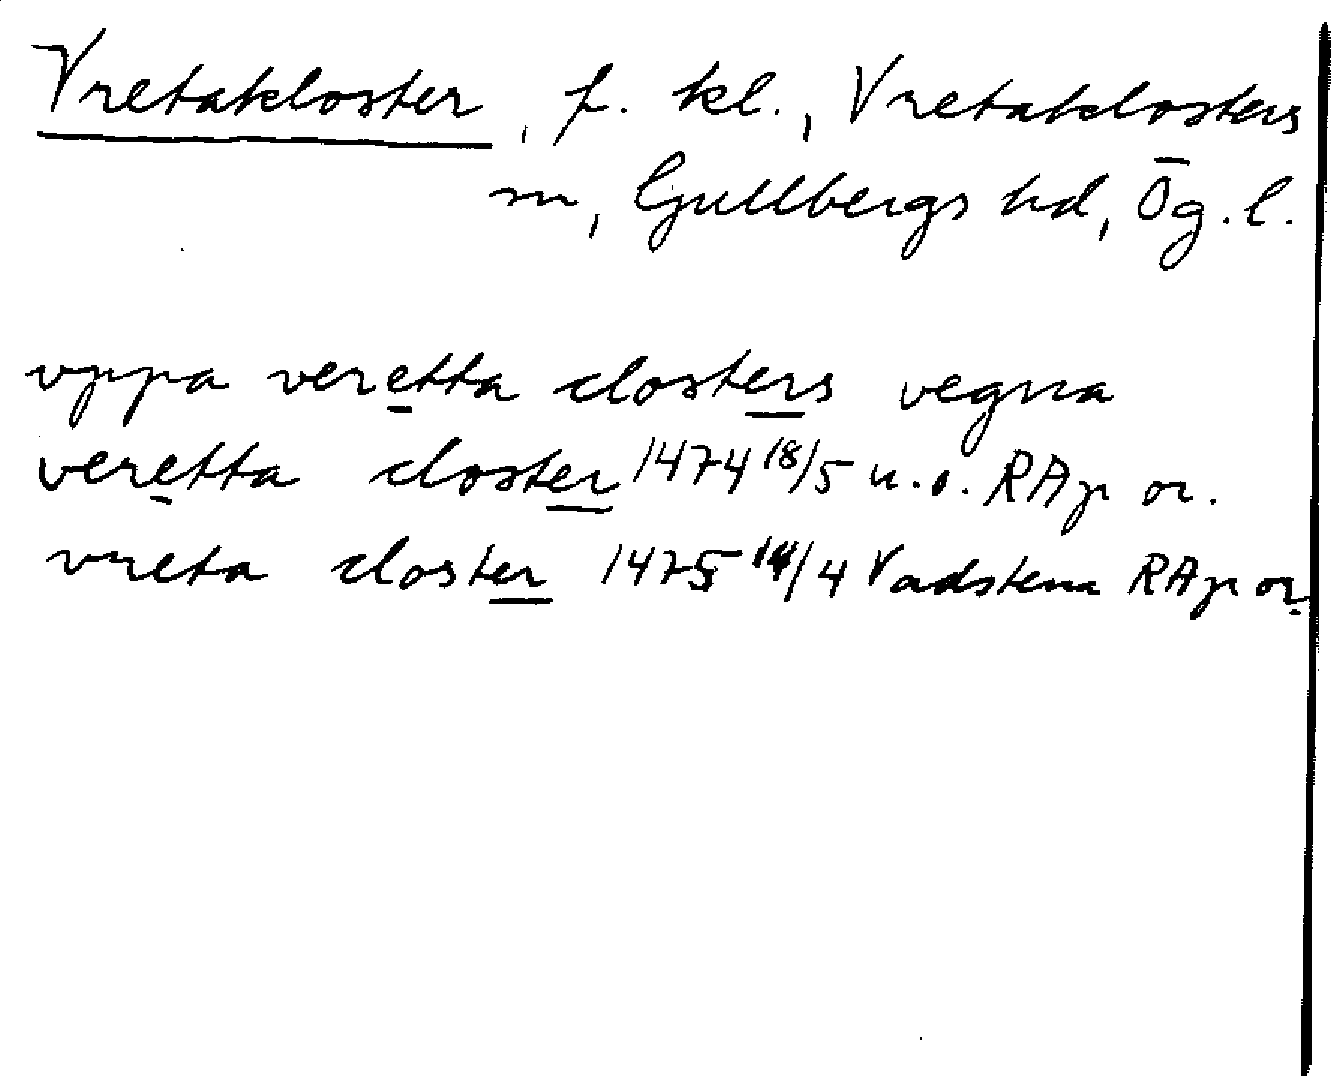 Vretakloster, f. kl., Vretaklosters
sn, Gullbergs hd, Ög. l.
vppa veretta closters vegna
veretta closter 1474 18/5 u.o. RAp or.
vreta closter 1475 14/4 Vadstena RAp or.